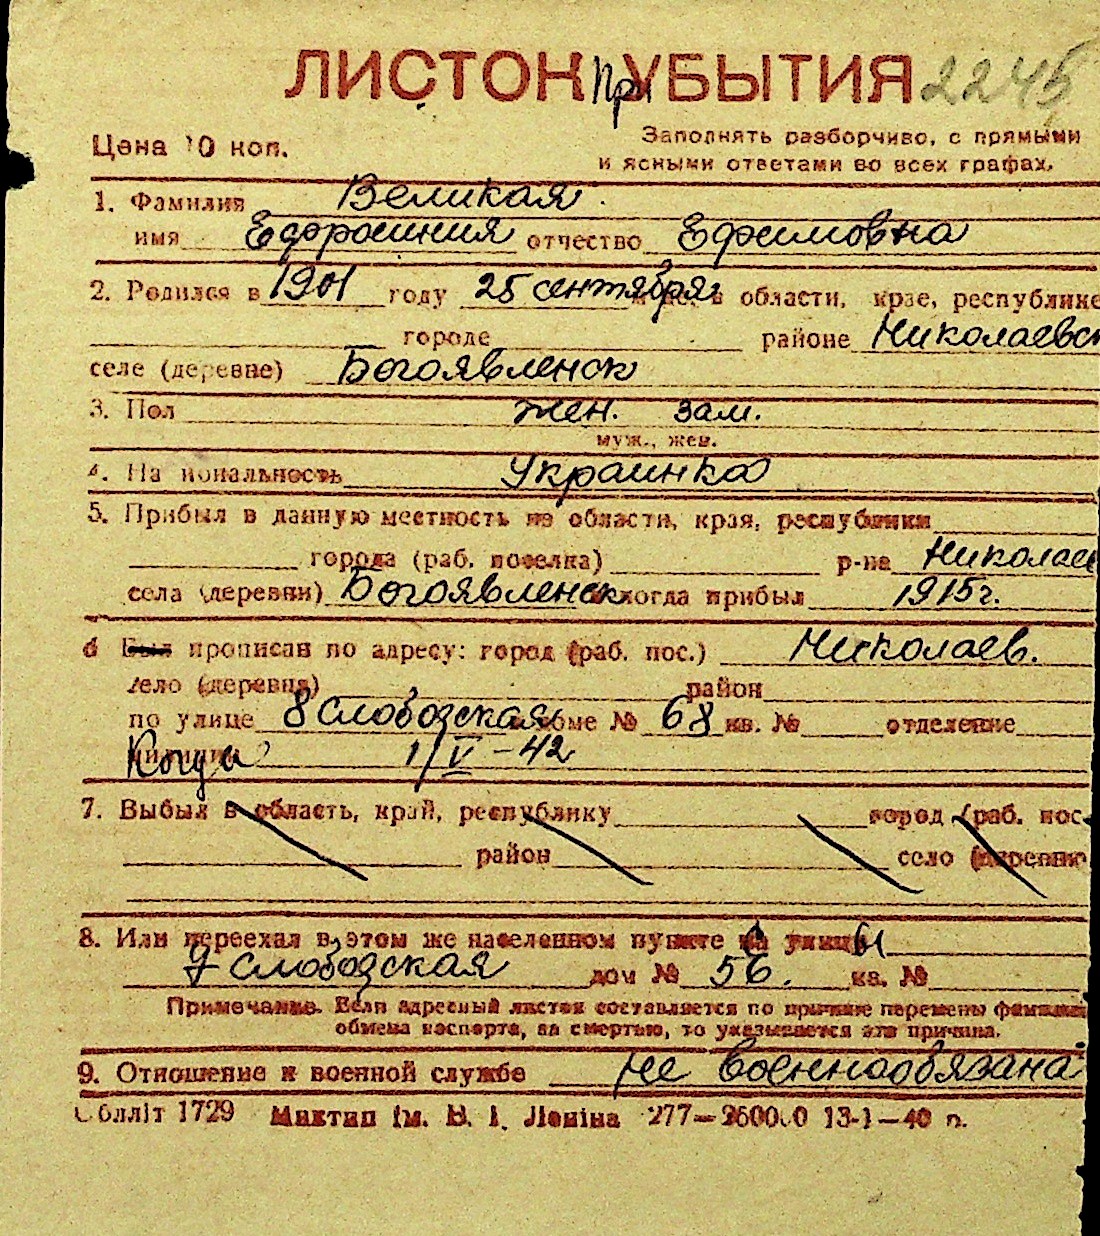 ЛИСТОК При УБЫТИЯ 2245
Цена 10 коп.
Заполнять разборчиво, с прямыми
и ясными ответами во всех графах.
1. Фамилия Великая
имя Ефросиния отчество Ефимовна
2. Родился в 1901 году 25 сентября в области, крае, республике
городе районе Николаевск
селе (деревне) Богоявленск
3. Пол жен. зам.
муж., жен.
4. На иональность Украинка
5. Прибыл в данную местность из области, края, республики
города (раб. поселка) р-на Николаев
села (деревни) Богоявленск когда прибыл 1915г.
6 Был прописан по адресу: город (раб. пос.) Николаев.
село (деревня) район
по улице 8 Слободская доме № 68 кв. № отделение
милиции Когда 1/V-42
7. Выбыл в область, край, республику город (раб. пос.
район село (деревню
8. Или переехал в этом же населенном пункте улицы
7 Слободская дом № 56. кв. №
Примечание. Если адресный листок составляется по причине перемены фамилии
обмена паспорта, за смертью, то указывается эта причина.
9. Отношение к военной службе не военнообязана
Облліт 1729 Миктип Ім. В. І. Леніна 277—260000 13-1—40 р.